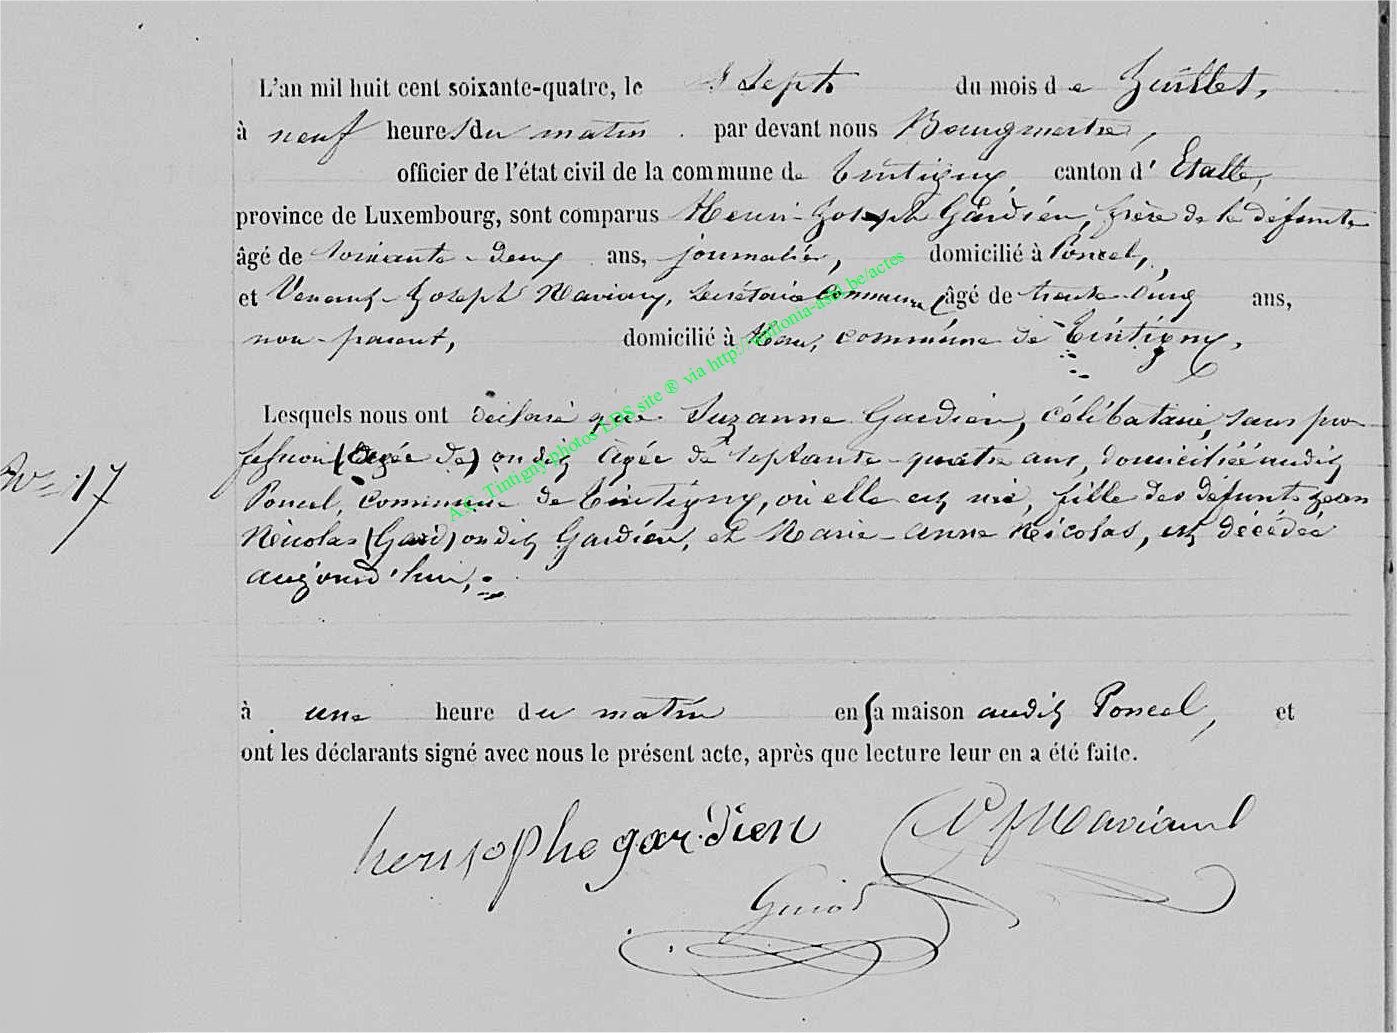 L'an mil huit cent soixante-quatre, le Sept du mois de Juillet,
à neuf heures du matin . par devant nous
officier de l'état civil de la commune de Tintigny, canton d' Etalle,
province de Luxembourg, sont comparus Henri-Joseph Gardien, frère de la défunte
âgé de soixante-deux ans, journalier, domicilié à Poncel,
et Joseph secrétaire communal âgé de trente-cinq ans,
non-parent, domicilié à Han, commune de Tintigny.
Lesquels nous ont déclaré que Suzanne Gardien, célibataire, sans pro-
fession (âgée de) on dit âgée de septante-quatre ans, domiciliée audit
Poncel, commune de Tintigny, où elle est née, fille des défunts Jean
Nicolas (Gard) on dit Gardien, et Marie-Anne Nicolas, est décédée
aujourd'hui,
N° 17
à une heure du matin en sa maison audit Poncel, et
ont les déclarants signé avec nous le présent acte, après que lecture leur en a été faite.
gardien
A.C. Tintigny photos LDS site ® via be/actes